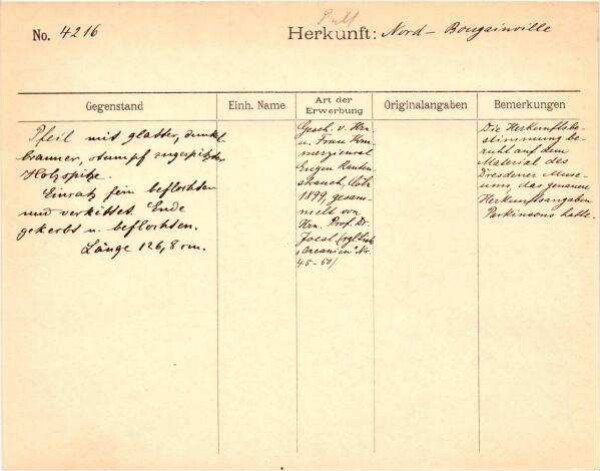 No. 4216
Herkunft: Nord - Bougainville
Gegenstand
Einh. Name
Art der Erwerbung
Originalangaben
Bemerkungen
Pfeil mit glatter, dunkel-
brauner, stumpf zugespitzter
Holzspitze.
Einsatz fein beflochten
und verkittet. Ende
gekerbt u. beflochten.
Länge 126,8 cm.
Gesch. v. Hrn
u. Frau Kom-
merzienrat
Eugen Rauten-
strauch, Cöln
1899, gesam-
melt von
Hrn. Prof. Dr.
Joest (vgl. Liste
"Oceanien" Nr.
45-50)
Die Herkunftsbe-
stimmung be-
ruht auf dem
Material des
Dresdener Muse-
ums, das genaue
Herkunftsangaben
Parkinsons hatte.